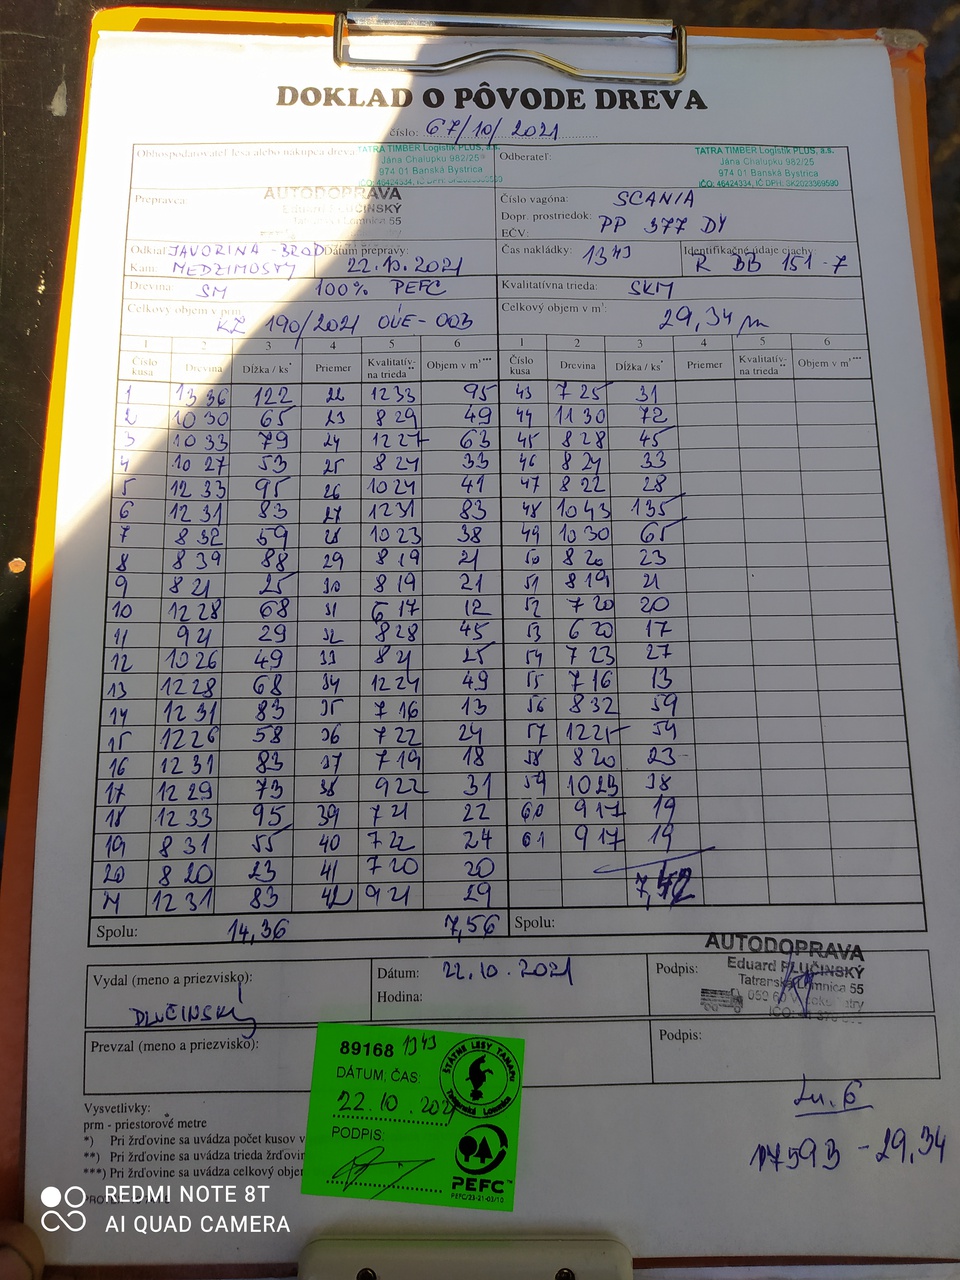 DOKLAD O PÔVODE DREVA
číslo: 67/10/2021
Obhospodarovateľ lesa alebo nákupca dreva
TATRA TIMBER Logistik PLUS, a.s.
Jána Chalupku 982/25
974 01 Banská Bystrica
IČO: 46424334, IČ DPH: SK2023369590
Odberateľ:
TATRA TIMBER Logistik PLUS, a.s.
Jána Chalupku 982/25
974 01 Banská Bystrica
IČO: 46424334, IČ DPH: SK2023369590
Prepravca
AUTODOPRAVA
Eduard PLUČINSKÝ
Tatranská Lomnica 55
Číslo vagóna: SCANIA
Dopr. prostriedok:
EČV: PP 377 DY
Odkiaľ JAVORINA - BROD
Kam: MEDZIMOSTY
Dátum prepravy:
22.10.2021
Čas nakládky: 13 43
Identifikačné údaje ciachy:
R BB 151-7
Drevina: SM 100% PEFC
Kvalitatívna trieda: SKM
Celkový objem v prm:
KZ 190/2021 OÚE-003
Celkový objem v m³: 29,34 m
1 2 3 4 5 6 1 2 3 4 5 6
Číslo kusa Drevina Dĺžka / ks* Priemer Kvalitatív- na trieda** Objem v m³*** Číslo kusa Drevina Dĺžka / ks* Priemer Kvalitatív- na trieda** Objem v m³***
1 13 36 122 22 12 33 95 43 7 25 31
2 10 30 65 23 8 29 49 44 11 30 72
3 10 33 79 24 12 27 63 45 8 28 45
4 10 27 53 25 8 24 33 46 8 24 33
5 12 33 95 26 10 24 41 47 8 22 28
6 12 31 83 27 12 31 83 48 10 43 135
7 8 32 59 28 10 23 38 49 10 30 65
8 8 39 88 29 8 19 21 50 8 20 23
9 8 21 25 30 8 19 21 51 8 19 21
10 12 28 68 31 6 17 12 52 7 20 20
11 9 21 29 32 8 28 45 53 6 20 17
12 10 26 49 33 8 21 25 54 7 23 27
13 12 28 68 34 12 24 49 55 7 16 13
14 12 31 83 35 7 16 13 56 8 32 59
15 12 26 58 36 7 22 24 57 12 25 54
16 12 31 83 37 7 19 18 58 8 20 23
17 12 29 73 38 9 22 31 59 10 23 38
18 12 33 95 39 7 21 22 60 9 17 19
19 8 31 55 40 7 22 24 61 9 17 19
20 8 20 23 41 7 20 20
21 12 31 83 42 9 21 29 7,42
Spolu: 14,36 7,56 Spolu:
Vydal (meno a priezvisko):
PLUČINSKÝ
Dátum: 22.10.2021
Hodina:
Podpis:
AUTODOPRAVA
Eduard PLUČINSKÝ
Tatranská Lomnica 55
Prevzal (meno a priezvisko):
Podpis:
89168 1343
DÁTUM, ČAS:
22.10.2021
PODPIS:
ŠTÁTNE LESY TANAPU
Tatranská Lomnica
PEFC
PEFC/23-21-03/10
Vysvetlivky:
prm - priestorové metre
*) Pri žrďovine sa uvádza počet kusov v
**) Pri žrďovine sa uvádza trieda žrďovin
***) Pri žrďovine sa uvádza celkový objem
Lu. 6
17593 - 29,34
REDMI NOTE 8T
AI QUAD CAMERA